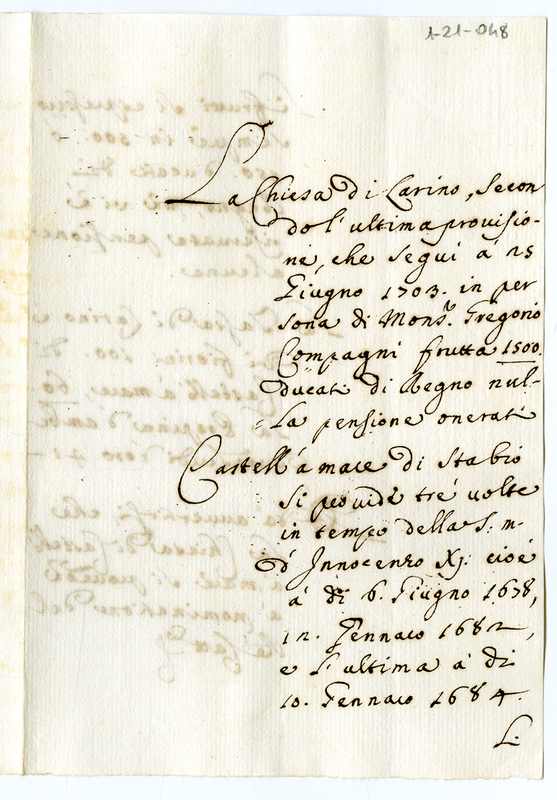 1-21-048
La Chiesa di Larino, secon
do l'ultima provisio-
ne, che seguì a 25
Giugno 1703. in per
sona di Mons.r Gregorio
Compagni frutta 1500.
ducati di Regno nul-
la pensione onerati
Castell'á mare di Stabio
si providè tré volte
in tempo della S: m-
d'Innocenzo XJ. cioé
á di 6. Giugno 1678,
12. Gennaio 1682,
e l'ultima á di
10. Gennaio 1684.
L.